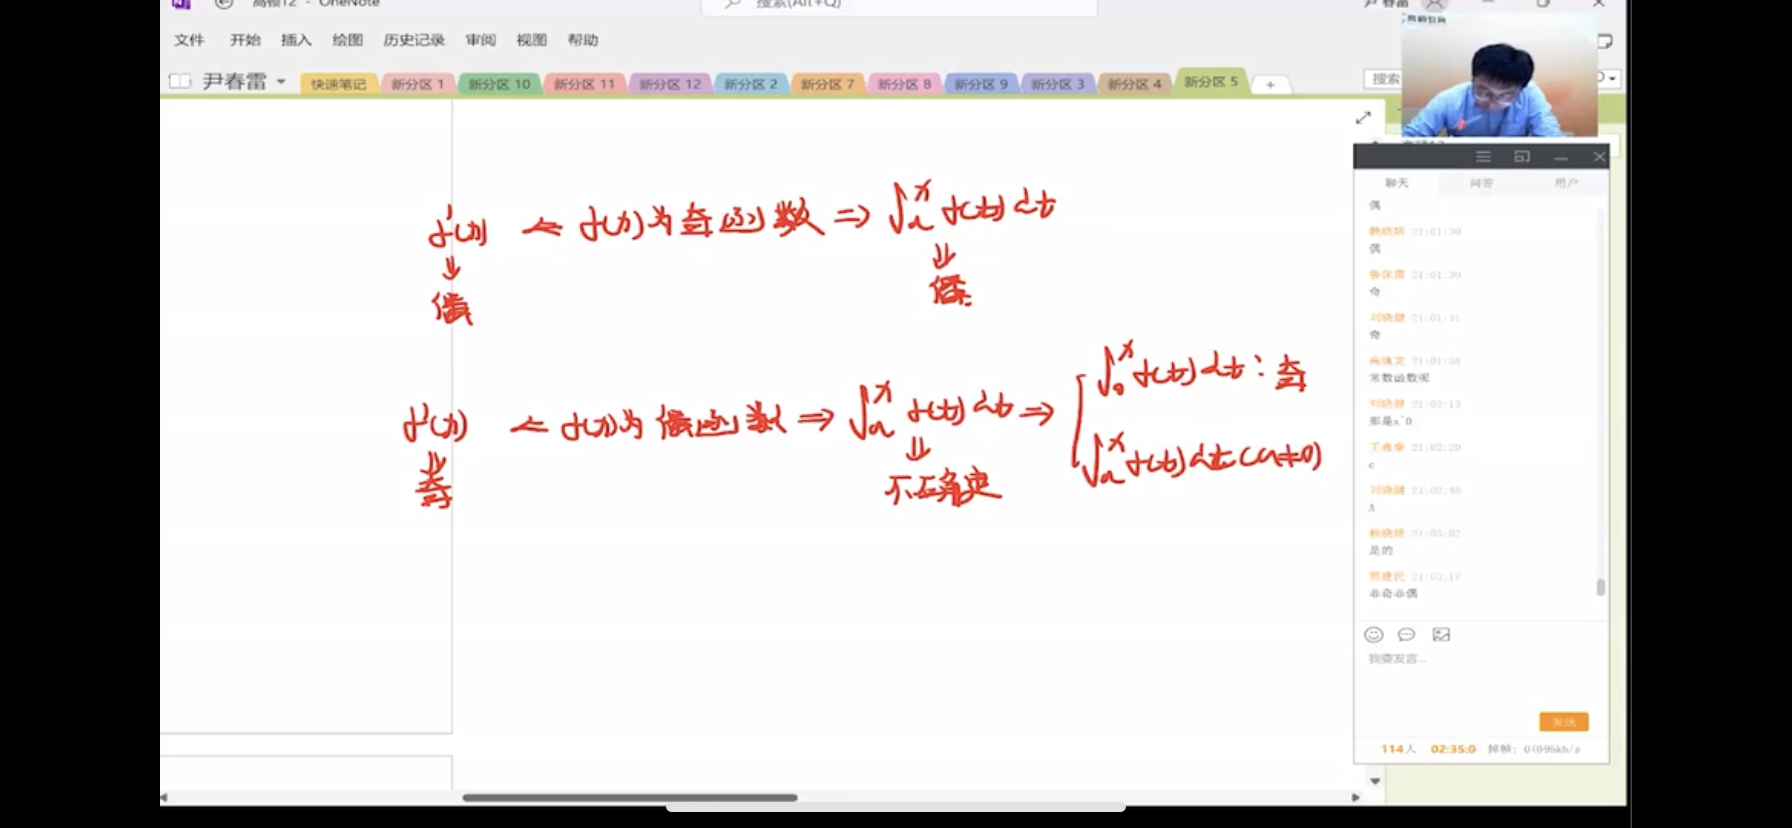 高顿12 - OneNote
搜索(Alt+Q)
尹春雷
文件 开始 插入 绘图 历史记录 审阅 视图 帮助
尹春雷 快速笔记 新分区 1 新分区 10 新分区 11 新分区 12 新分区 2 新分区 7 新分区 8 新分区 9 新分区 3 新分区 4 新分区 5 +
搜索
f'(x) ⇐ f(x)为奇函数 ⇒ ∫ₐˣ f(t)dt
⇓ ⇓
偶 偶
f'(x) ⇐ f(x)为偶函数 ⇒ ∫ₐˣ f(t)dt ⇒ ∫₀ˣ f(t)dt：奇
∫ₐˣ f(t)dt (a≠0)
⇓ ⇓
奇 不确定
聊天 问答 用户
偶
21:01:30
偶
21:01:30
奇
刘晓健 21:01:31
奇
21:01:58
常数函数呢
刘晓健 21:02:13
那是x^0
21:02:20
c
刘晓健 21:02:48
A
21:03:02
是的
贾建民 21:03:17
非奇非偶
我要发言...
发送
114人 02:35:0 掉帧: 0(096kb/s